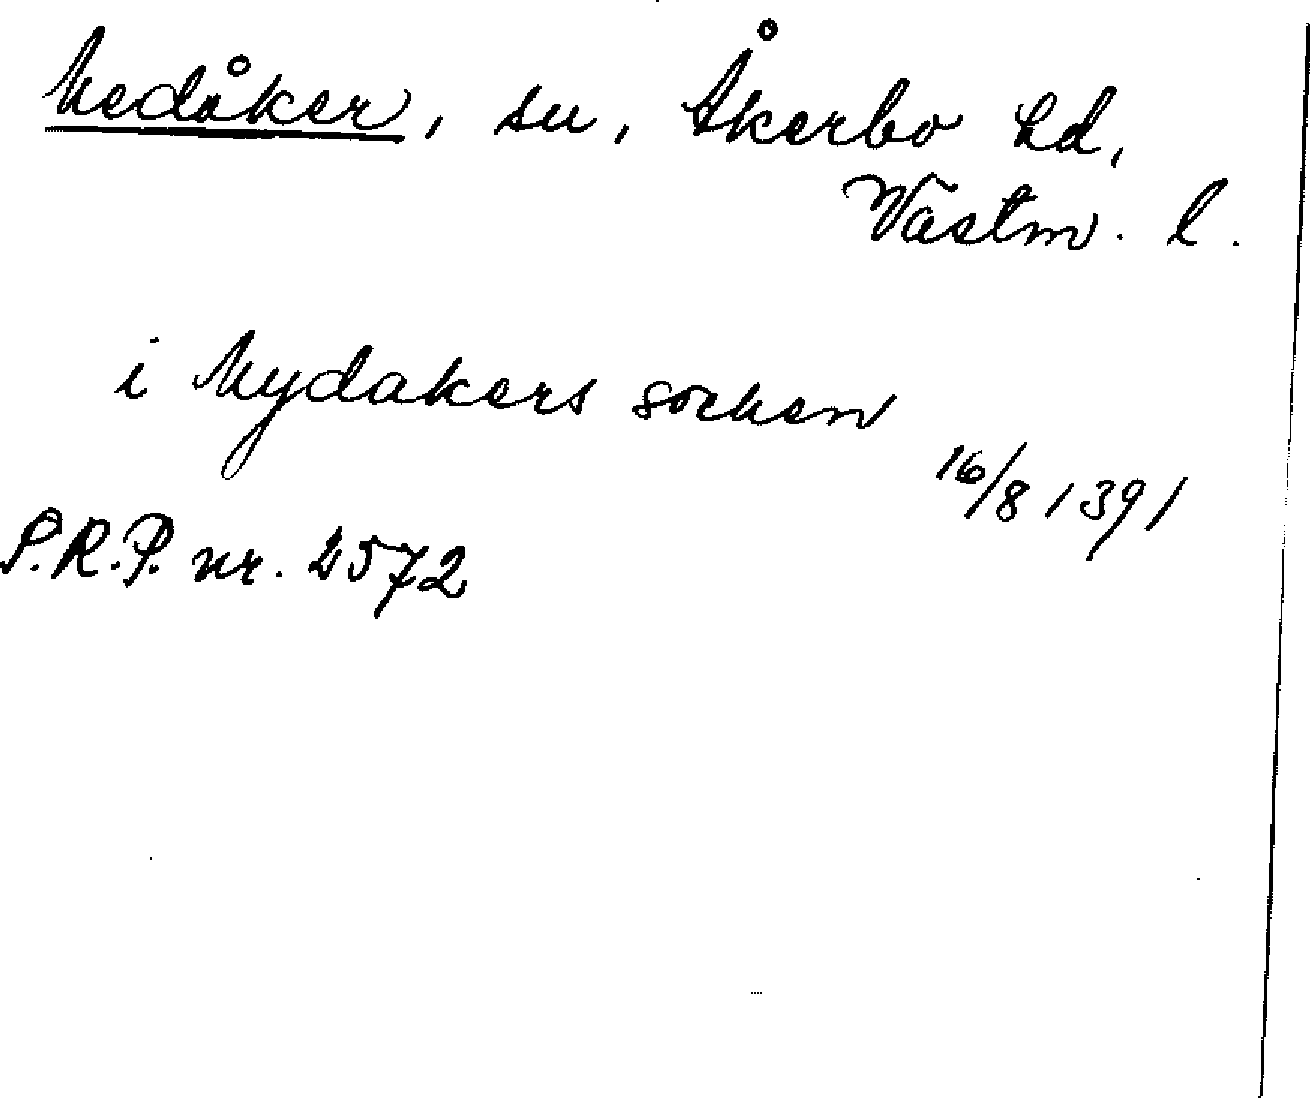 Medåker, sn, Åkerbo hd,
Västm. l.
i Mydakers sochen
16/8 1391
S.R.P. nr. 2572